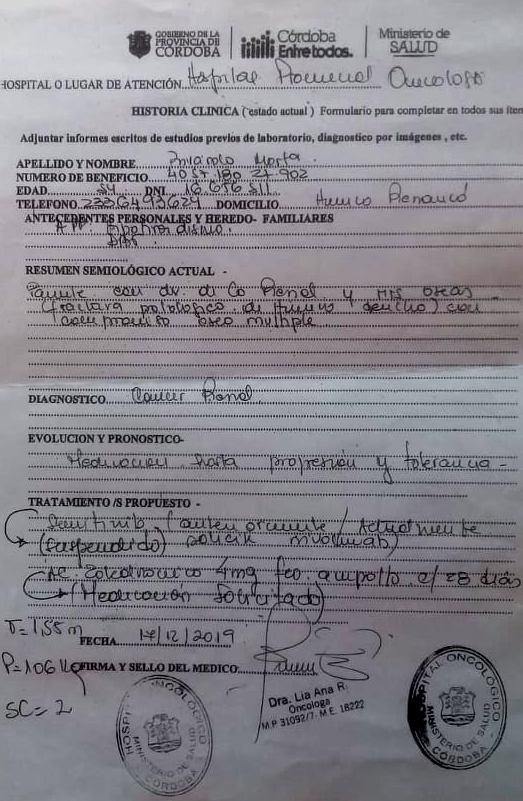 GOBIERNO DE LA
PROVINCIA DE
CÓRDOBA
Córdoba
Entretodos.
Ministerio de
SALUD
HOSPITAL O LUGAR DE ATENCIÓN Oncologico
HISTORIA CLINICA (estado actual) Formulario para completar en todos sus ítem
Adjuntar informes escritos de estudios previos de laboratorio, diagnostico por imágenes, etc.
APELLIDO Y NOMBRE Marta
NUMERO DE BENEFICIO 27-902
EDAD 54 DNI 16.656.511
TELEFONO DOMICILIO Renancó
ANTECEDENTES PERSONALES Y HEREDO- FAMILIARES
APP: Hipotiroidismo.
RESUMEN SEMIOLÓGICO ACTUAL -
Paciente con dx de Ca Renal y MTS oseas
(fractura patologica de humero derecho) con
compromiso oseo multiple
DIAGNOSTICO Cancer Renal
EVOLUCION Y PRONOSTICO-
Medicacion hasta progresion y tolerancia -
TRATAMIENTO /S PROPUESTO -
Sunitinib (anteriormente / Actualmente
(suspendido) solicito nivolumab)
Ac Zoledronico 4mg fco. ampolla c/ 28 dias
(Medicacion Solicitada)
T= 1,58 m
FECHA 17/12/2019
P= 106 Kg
FIRMA Y SELLO DEL MEDICO
SC= 2
Dra. Lia Ana R.
Oncologa
M.P 31092/7- M.E. 18222
HOSPITAL ONCOLÓGICO
MINISTERIO DE SALUD
CÓRDOBA
HOSPITAL ONCOLÓGICO
MINISTERIO DE SALUD
CÓRDOBA